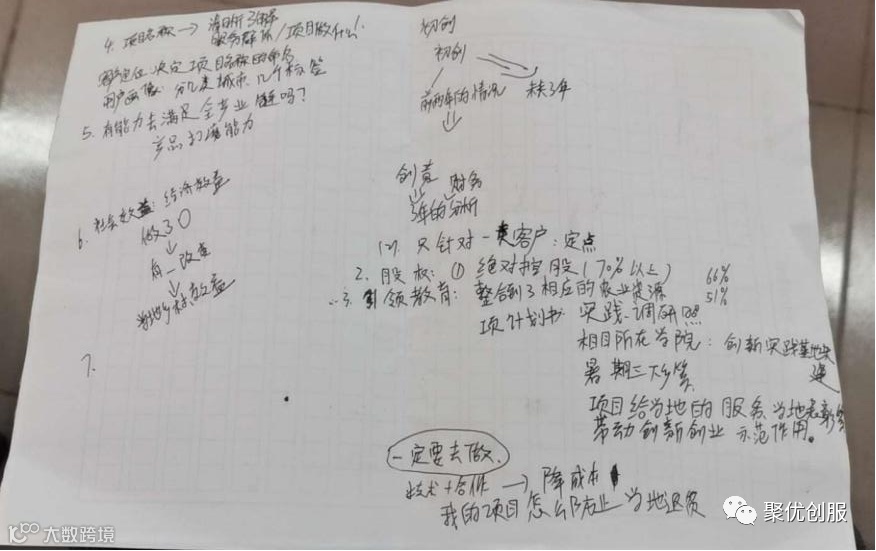 4. 项目名称 → 清晰
服务群体/项目做什么!
定位决定项目名称的命名
用户画像 分几类城市、几个标签
5. 有能力去满足全产业链吗?
产品 能力
6. 社会效益: 经济效益
做了〇
↓
有一改变
↓
当地乡村效益
7.
初创
初创
前两年的情况 未来3年
创意 财务
3年的分析
(2). 只针对一类客户: 定点
2. 股权: ① 绝对控股(70%以上) 66%
51%
3. 引领教育: 整合到了相应的农业资源
项计划书 实践、调研照
项目所在学院: 创新实践基地共建
暑期三下乡等
项目给当地的服务、当地
带动创新创业 示范作用。
一定要去做.
技术+合作 → 降成本
我的项目怎么防止当地返贫
聚优创服
大数跨境